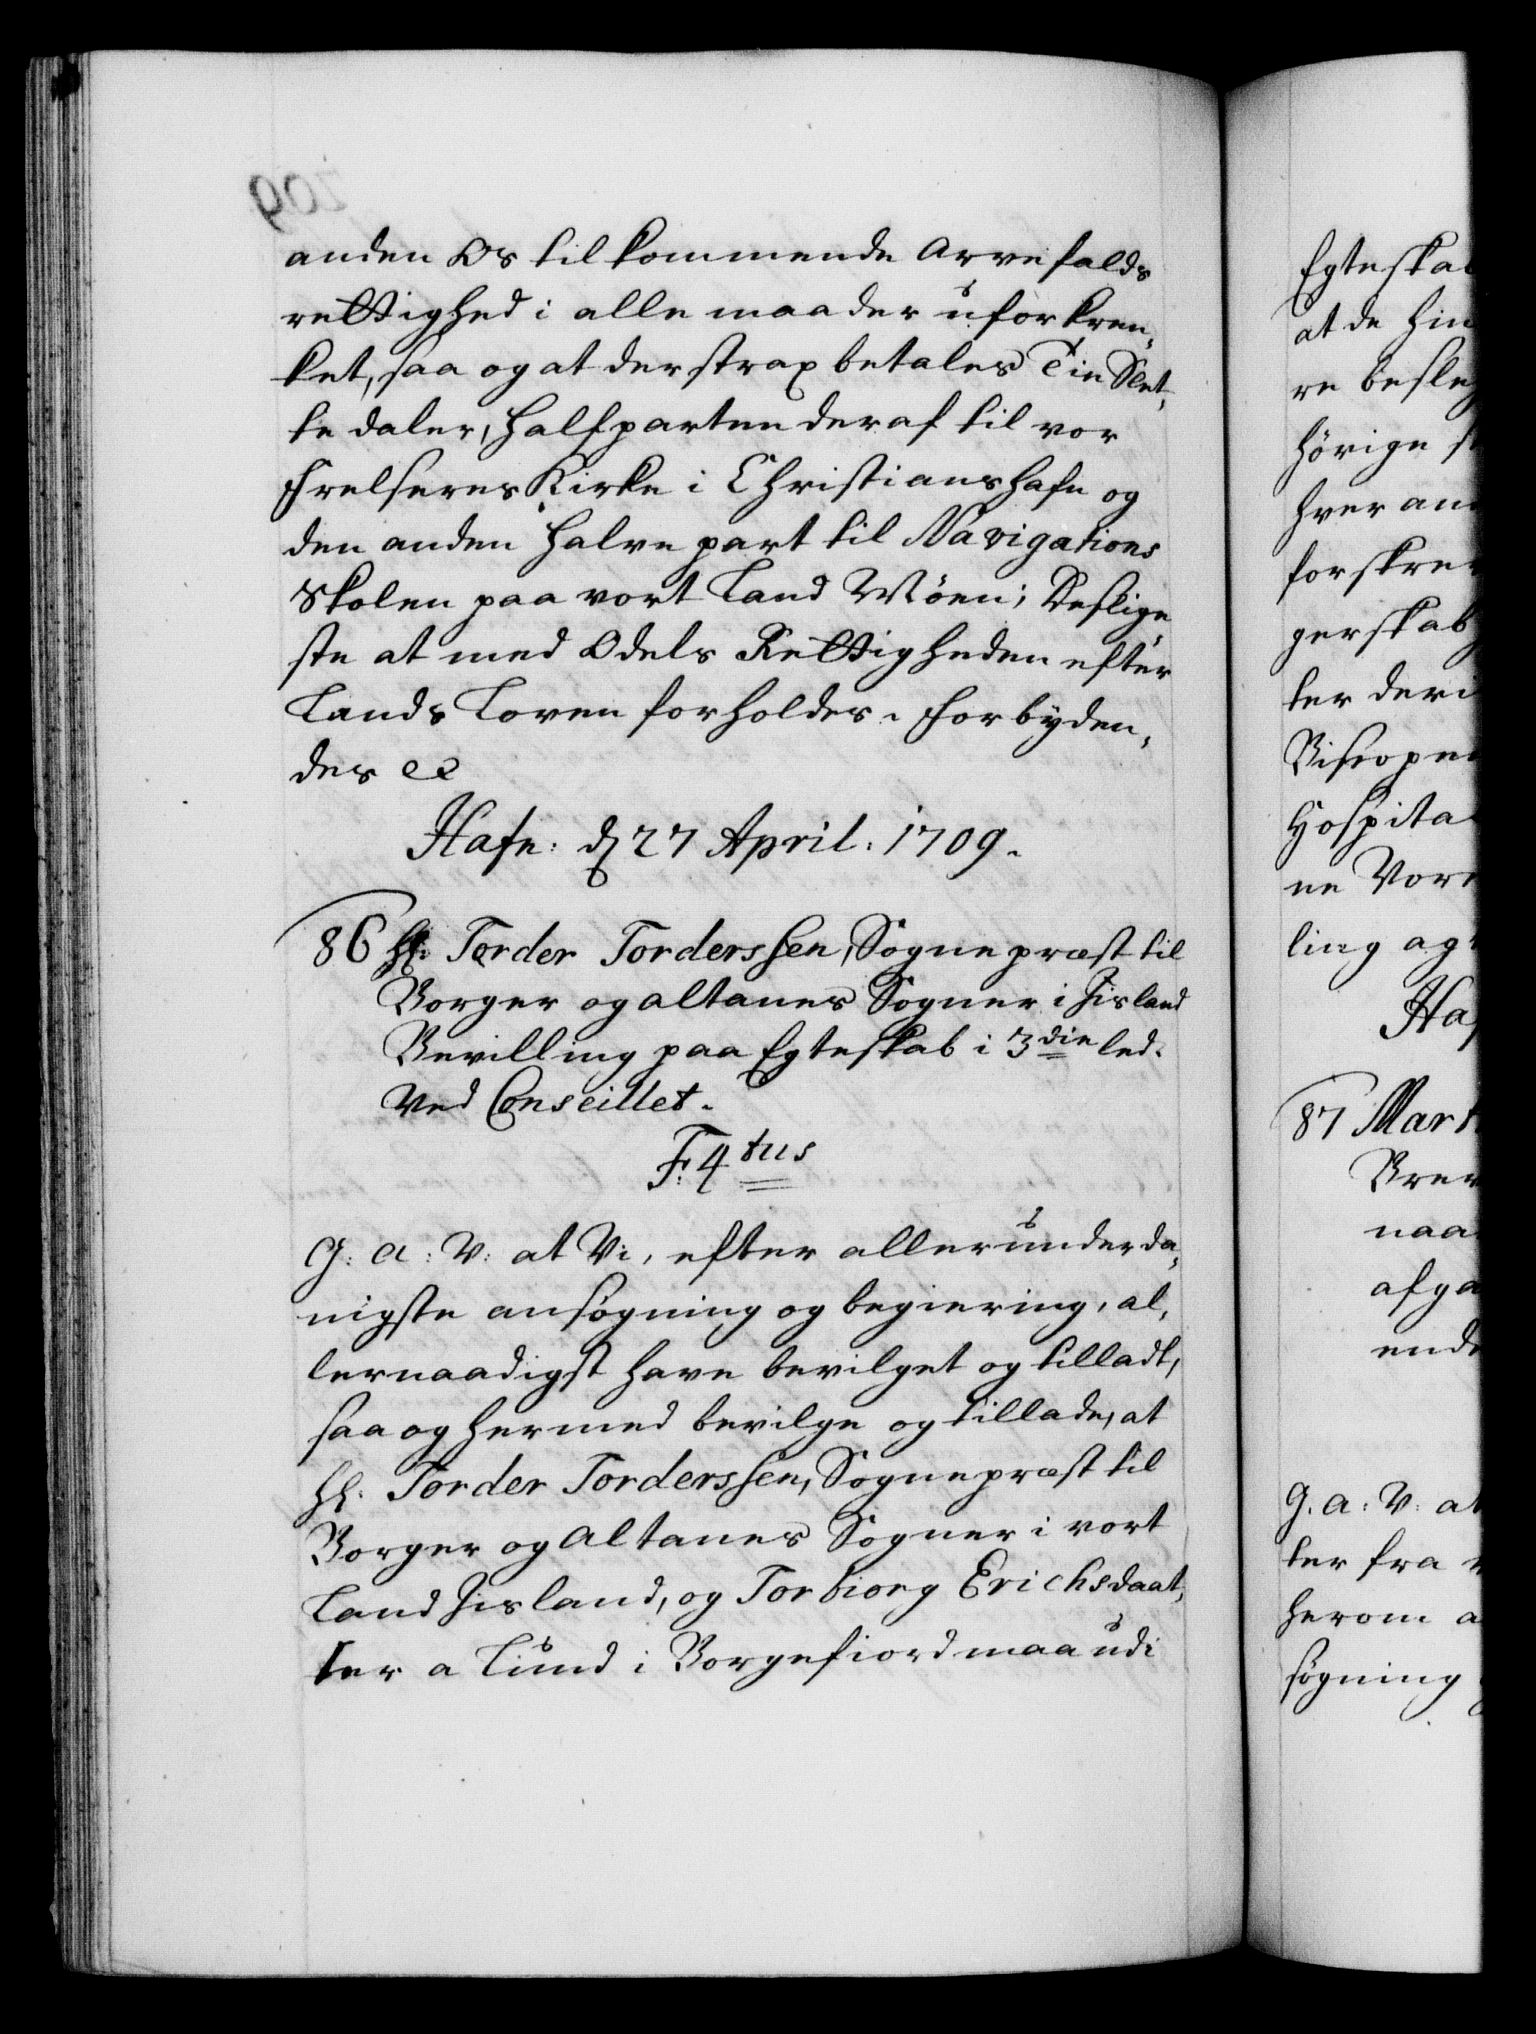 anden Os tilkommende Arvefalds
rettighed i alle maader uforkren¬
ket, saa og at der strax betales Tie Slet¬
te daler, halfparten deraf til vor
Frelseres Kirke i Christianshafn og
den anden halve part til Navigations
Skolen paa vort Land Møen; Deslige
ste at med Odels Rettigheden efter
Lands Loven forholdes. Forbyden¬
des &c
Hafn: d 27 April. 1709.
86 Hr: Torder Torderssen, Sognepræst til
Borger og Altanes Sogner i Jisland
Bevilling paa Egteskab i 3die led.
Ved Conseillet.
F: 4tus
G: A: V: at Vi, efter allerunderda¬
nigste ansøgning og begiering, al¬
lernaadigst have bevilget og tilladt,
saa og hermed bevilge og tillade, at
Hr. Torder Torderssen, Sognepræst til
Borger og Altanes Sogner i vort
Land Jisland, og Torbiorg Erichsdaat¬
ter a Lund i Borgefiord maa udi
Egteska
at de hin
re besle
hørige
hver an
forskre
gerskab
ter deri
Biscopen
Hospita
ne Vor
ling ag
Haf
87 Mart
Brev
naa
afga
ende
G. A: V: at
ter fra
herom a
søgning
209